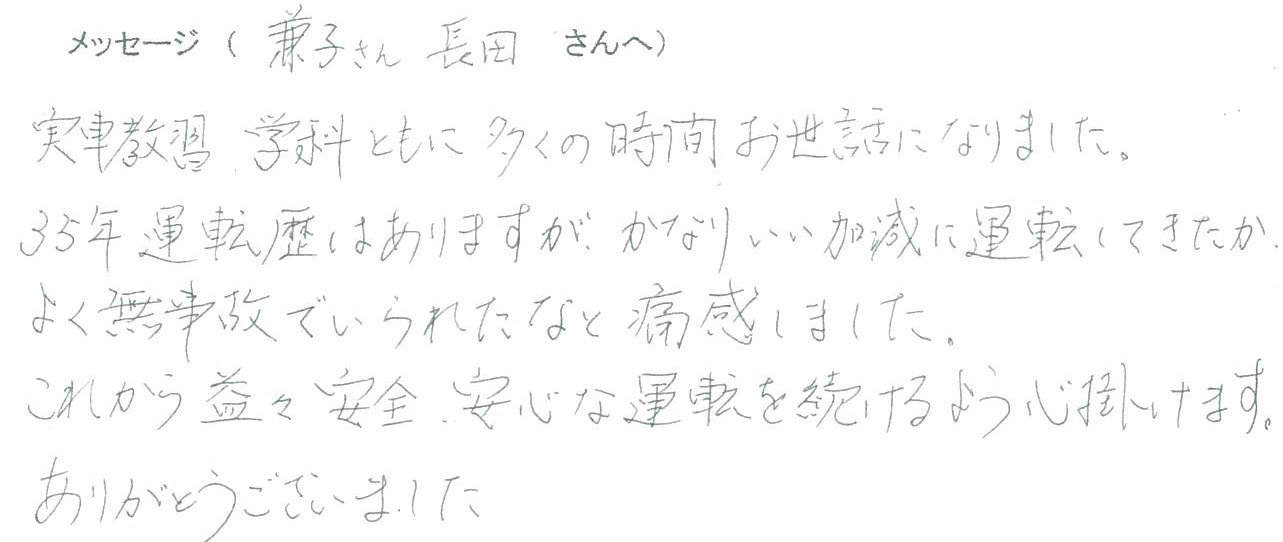 メッセージ（ 兼子さん 長田 さんへ）
実車教習 学科ともに多くの時間お世話になりました。
35年運転歴はありますが、かなりいい加減に運転してきたか、
よく無事故でいられたなと痛感しました。
これから益々安全、安心な運転を続けるよう心掛けます。
ありがとうございました